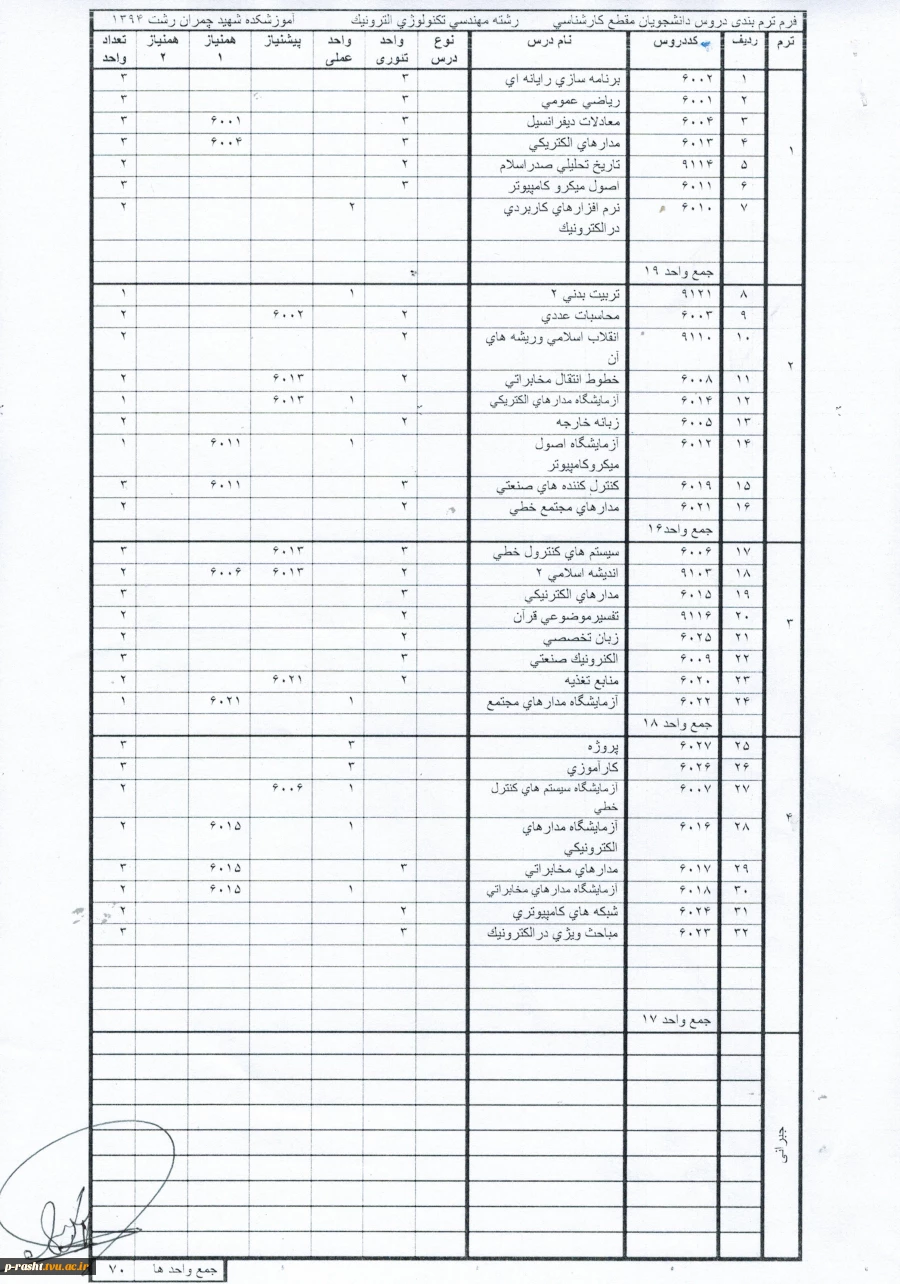 فرم ترم بندی دروس دانشجویان مقطع کارشناسي رشته مهندسي تکنولوژي الترونيك آموزشکده شهيد چمران رشت ۱۳۹۴
ترم ردیف کددروس نام درس نوع درس واحد تئوری واحد عملی پیشنیاز همنیاز ۱ همنیاز ۲ تعداد واحد
۱
۱ ۶۰۰۲ برنامه سازي رايانه اي ۳ ۳
۲ ۶۰۰۱ رياضي عمومي ۳ ۳
۳ ۶۰۰۴ معادلات ديفرانسيل ۳ ۶۰۰۱ ۳
۴ ۶۰۱۳ مدارهاي الكتريكي ۳ ۶۰۰۴ ۳
۵ ۹۱۱۴ تاريخ تحليلي صدراسلام ۲ ۲
۶ ۶۰۱۱ اصول ميكرو كامپيوتر ۳ ۳
۷ ۶۰۱۰ نرم افزارهاي كاربردي ۲ ۲
درالكترونيك
جمع واحد ۱۹
۲
۸ ۹۱۲۱ تربيت بدني ۲ ۱ ۱
۹ ۶۰۰۳ محاسبات عددي ۲ ۶۰۰۲ ۲
۱۰ ۹۱۱۰ انقلاب اسلامي وريشه هاي ۲ ۲
آن
۱۱ ۶۰۰۸ خطوط انتقال مخابراتي ۲ ۶۰۱۳ ۲
۱۲ ۶۰۱۴ آزمايشگاه مدارهاي الكتريكي ۱ ۶۰۱۳ ۱
۱۳ ۶۰۰۵ زبانه خارجه ۲ ۲
۱۴ ۶۰۱۲ آزمايشگاه اصول ۱ ۶۰۱۱ ۱
ميكروكامپيوتر
۱۵ ۶۰۱۹ كنترل كننده هاي صنعتي ۳ ۶۰۱۱ ۳
۱۶ ۶۰۲۱ مدارهاي مجتمع خطي ۲ ۲
جمع واحد۱۶
۳
۱۷ ۶۰۰۶ سيستم هاي كنترول خطي ۳ ۶۰۱۳ ۳
۱۸ ۹۱۰۳ انديشه اسلامي ۲ ۲ ۶۰۱۳ ۶۰۰۶ ۲
۱۹ ۶۰۱۵ مدارهاي الكترنيكي ۳ ۳
۲۰ ۹۱۱۶ تفسيرموضوعي قرآن ۲ ۲
۲۱ ۶۰۲۵ زبان تخصصي ۲ ۲
۲۲ ۶۰۰۹ الكنرونيك صنعتي ۳ ۳
۲۳ ۶۰۲۰ منابع تغذيه ۲ ۶۰۲۱ ۲
۲۴ ۶۰۲۲ آزمايشگاه مدارهاي مجتمع ۱ ۶۰۲۱ ۱
جمع واحد ۱۸
۴
۲۵ ۶۰۲۷ پروژه ۳ ۳
۲۶ ۶۰۲۶ كارآموزي ۳ ۳
۲۷ ۶۰۰۷ ازمايشگاه سيستم هاي كنترل ۱ ۶۰۰۶ ۲
خطي
۲۸ ۶۰۱۶ آزمايشگاه مدارهاي ۱ ۶۰۱۵ ۲
الكترونيكي
۲۹ ۶۰۱۷ مدارهاي مخابراتي ۳ ۶۰۱۵ ۳
۳۰ ۶۰۱۸ آزمايشگاه مدارهاي مخابراتي ۱ ۶۰۱۵ ۲
۳۱ ۶۰۲۴ شبكه هاي كامپيوتري ۲ ۲
۳۲ ۶۰۲۳ مباحث ويژي درالكترونيك ۳ ۳
جمع واحد ۱۷
جبرانی
جمع واحد ها ۷۰
p-rasht.tvu.ac.ir